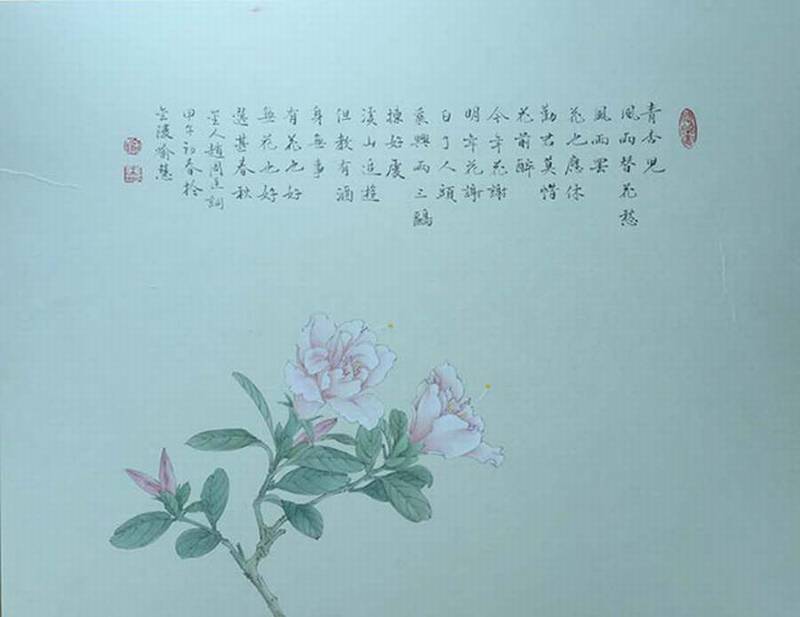 青杏兒
風雨替花愁
風雨罷
花也應休
勸君莫惜
花前醉
今年花謝
明年花謝
白了人頭
乘興兩三甌
揀好處
溪山追遊
但教有酒
身無事
有花也好
無花也好
選甚春秋
金人趙周臣詞
甲午初春於
金陵喻慧